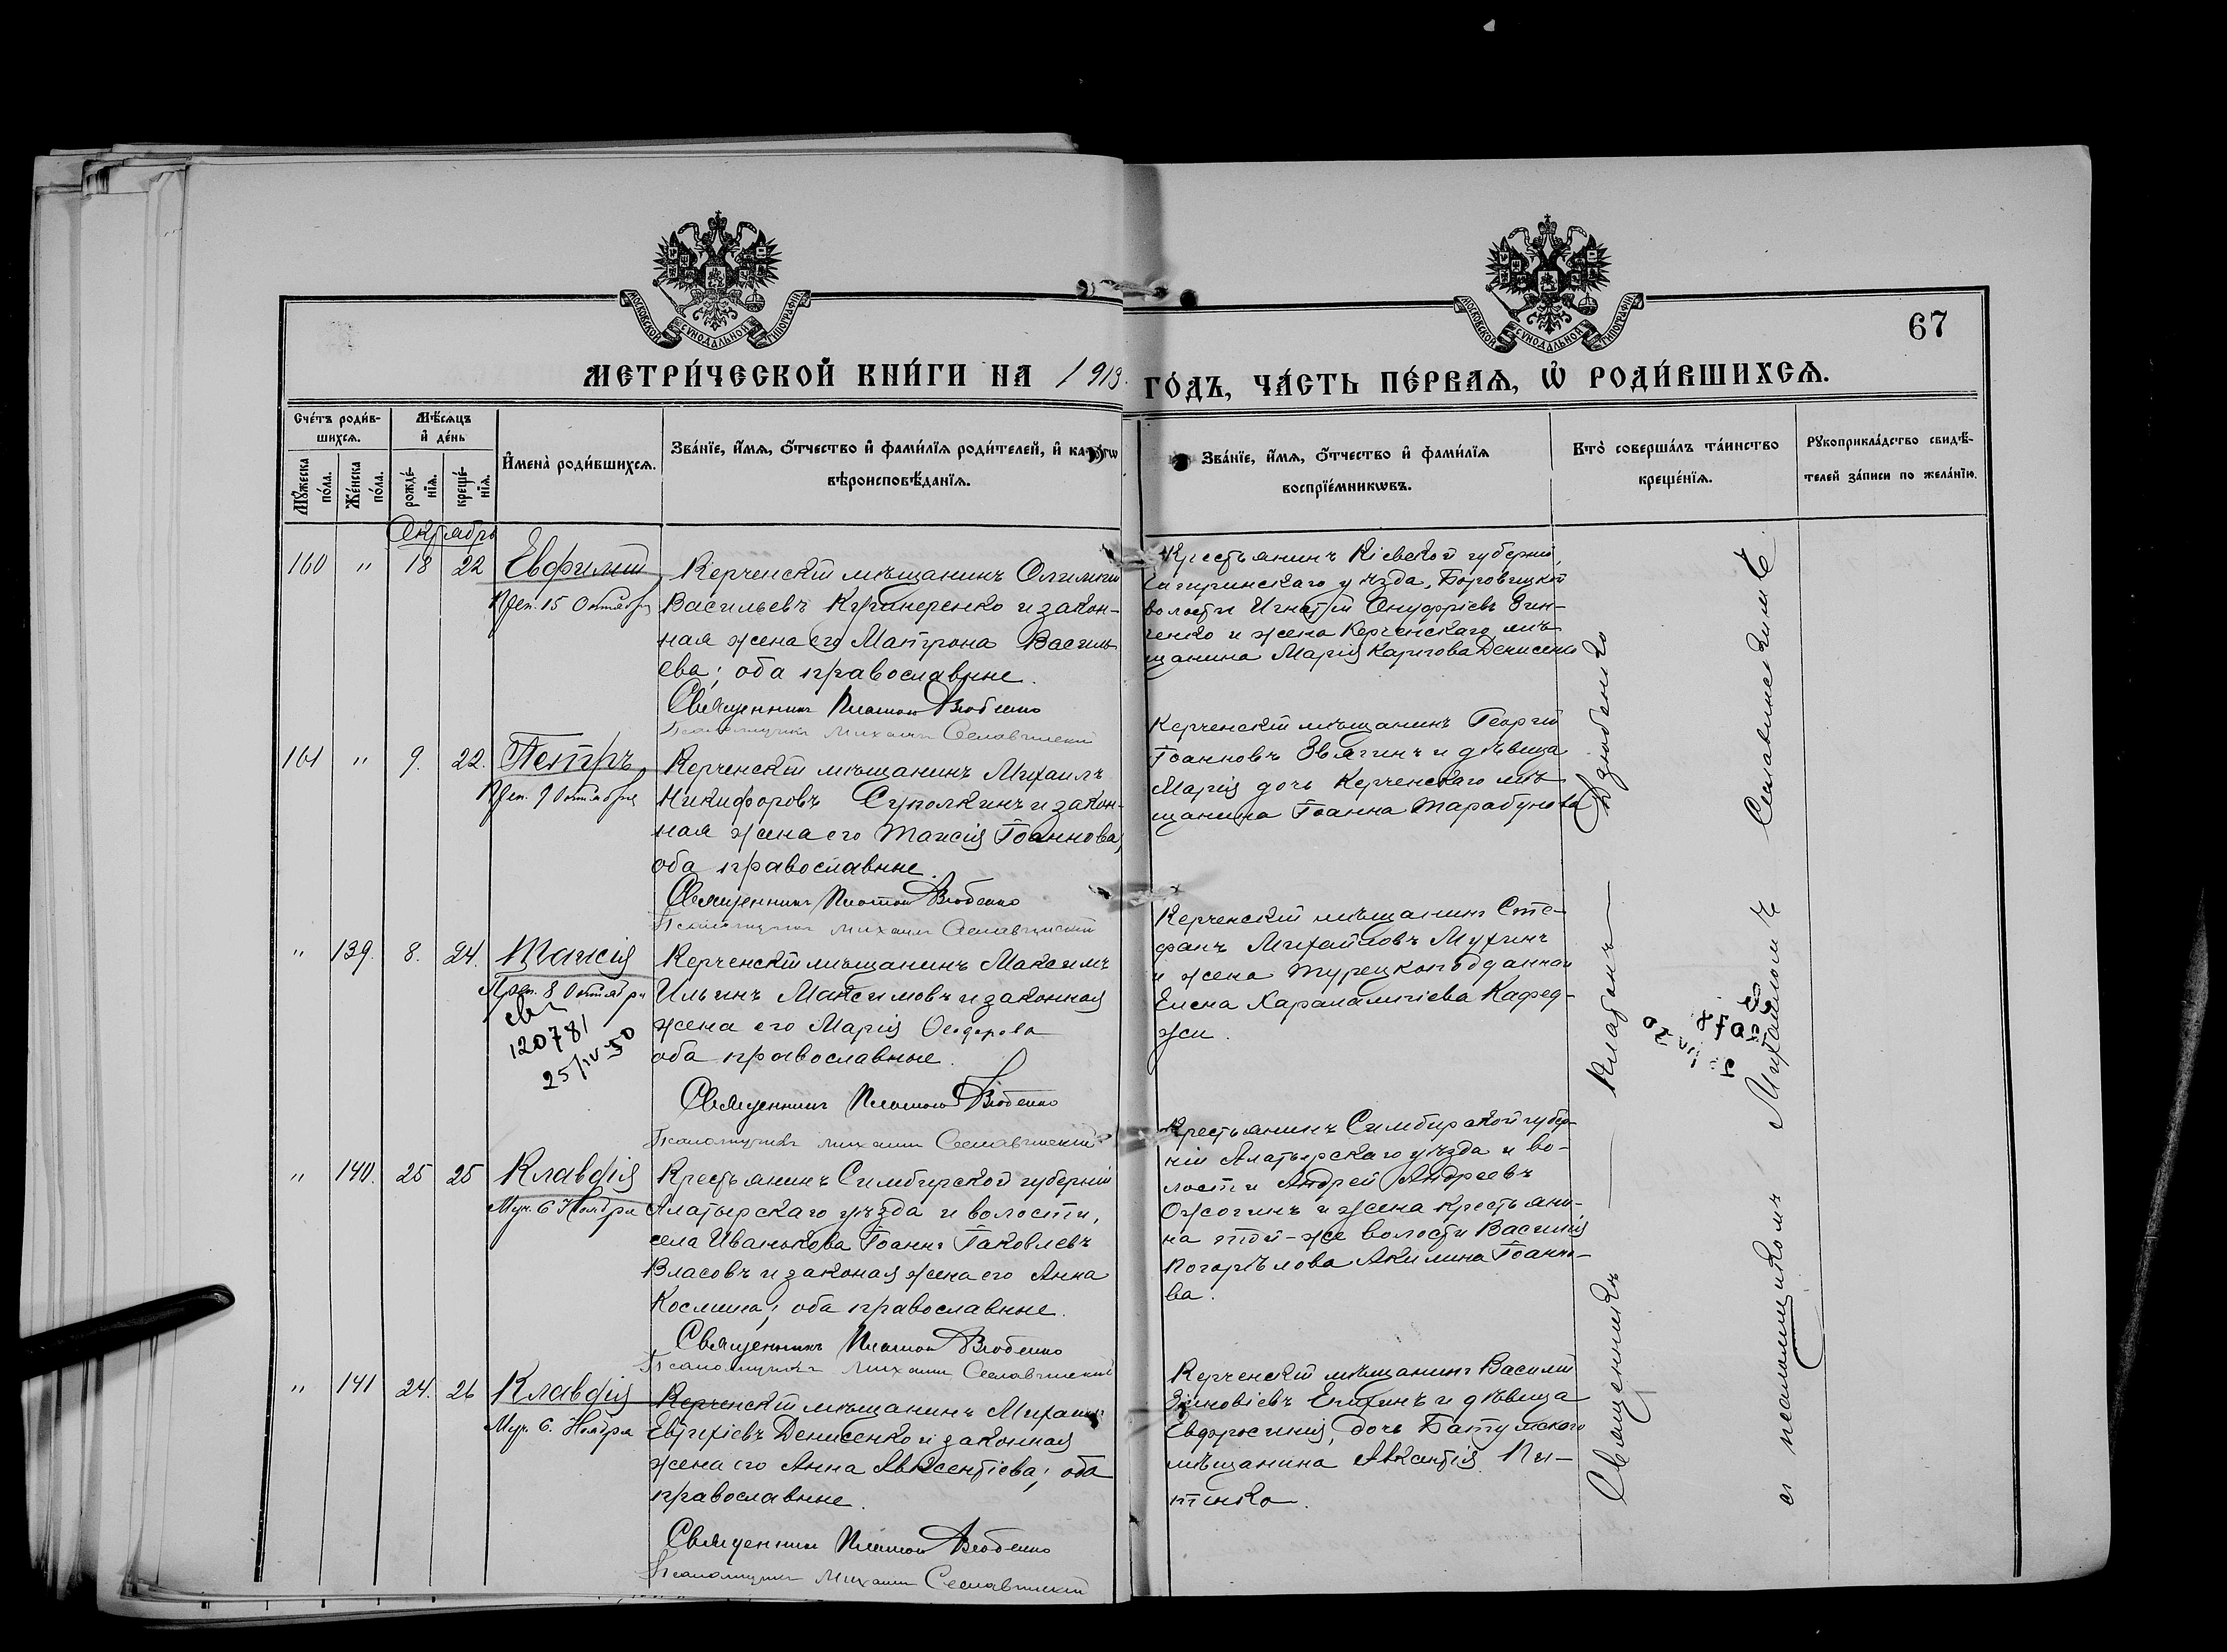 МОСКОВСКОЙ СѴНОДАЛЬНОЙ ТИПОГРАФІИ
МОСКОВСКОЙ СѴНОДАЛЬНОЙ ТИПОГРАФІИ
67
МЕТРИ́ЧЕСКОЙ КНИ́ГИ НА 1913 ГО́ДЪ, ЧА́СТЬ ПЕ́РВАѦ, Ѡ҆ РОДИ́ВШИХСѦ.
Сче́тъ роди́в-
шихсѧ.
Мѣ́сѧцъ
и҆ де́нь
Мꙋ́жеска по́ла.
Же́нска по́ла.
рожде́-
нїѧ.
креще́-
нїѧ.
И҆мена̀ роди́вшихсѧ.
Зва́нїе, и҆́мѧ, ѻ҆́тчество и҆ фами́лїѧ роди́телей, и҆
вѣроисповѣ́данїѧ.
Зва́нїе, и҆́мѧ, ѻ҆́тчество и҆ фами́лїѧ
воспрїе́мникѡвъ.
Кто̀ соверша́лъ та́инство
креще́нїѧ.
Рꙋкоприкла́дство свидѣ́-
телей за́писи по жела́нїю.
Октябрь
160 " 18 22 Евфимій
Преп. 15 Октября
Керченскій мѣщанинъ
Васильевъ и закон-
ная жена его Матрона Василь
ева; оба православные.
Священникъ Платонъ
Псаломщикъ Михаилъ Сеславинскій
Крестьянинъ Кіевской губерніи,
Чигиринскаго уѣзда, Боровицкой
волости Игнатій Онуфріевъ Зин-
ченко и жена Керченскаго мѣ-
щанина Марія Карпова Денисенко
161 " 9. 22. Петръ
Преп. 9 Октября
Керченскій мѣщанинъ Михаилъ
Никифоровъ и закон-
ная жена его Таисія Іоаннова,
оба православные.
Священникъ Платонъ
Псаломщикъ Михаилъ Сеславинскій
Керченскій мѣщанинъ Георгій
Іоанновъ Звягинъ и дѣвица
Марія дочь Керченскаго мѣ
щанина Іоанна Тарабунова
" 139. 8. 24. Таисія
Преп. 8 Октября
св
120781
25/IV-50
Керченскій мѣщанинъ Максимъ
Ильинъ Максимовъ и законная
жена его Марія Ѳеодорова
оба православные.
Священникъ Платонъ
Псаломщикъ Михаилъ Сеславинскій
Керченскій мѣщанинъ Сте-
фанъ Михайловъ Мухинъ
и жена турецкоподданнаго
Елена Харалампіева Кафед-
жи.
" 140. 25 25 Клавдія
Муч. 6 Ноября
Крестьянинъ Симбирской губерніи
Алатырскаго уѣзда и волости,
села Иванькова Іоаннъ Іаковлевъ
Власовъ и законая жена его Анна
Космина; оба православные.
Священникъ Платонъ
Псаломщикъ Михаилъ Сеславинскій
Крестьянинъ Симбирской губер-
ніи Алатырскаго уѣзда и во-
лости Андрей Андреевъ
Ожогинъ и жена крестьяни-
на той-же волости Василія
Погорѣлова Акилина Іоанно-
ва.
" 141 24. 26 Клавдія
Муч. 6. Ноября
Керченскій мѣщанинъ Михаилъ
Евтихіевъ Денисенко и законная
жена его Анна Авксентіева; оба
православные.
Священникъ Платонъ
Псаломщикъ Михаилъ Сеславинскій
Керченскій мѣщанинъ Василій
Зиновіевъ Епихинъ и дѣвица
Евфросинія, дочь Батумскаго
мѣщанина Авксентія
Священникъ — Платонъ —
съ псаломщикомъ Михаиломъ Сеславинскимъ.